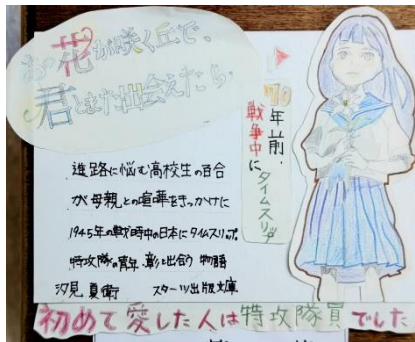 あの花が咲く丘で、
君とまた出会えたら。
70年前、
戦争中に
タイムスリップ
進路に悩む高校生の百合
が母親との喧嘩をきっかけに
1945年の戦時中の日本にタイムスリップ。
特攻隊の青年、彰と出会う物語
汐見夏衛 スターツ出版文庫
初めて愛した人は特攻隊員でした